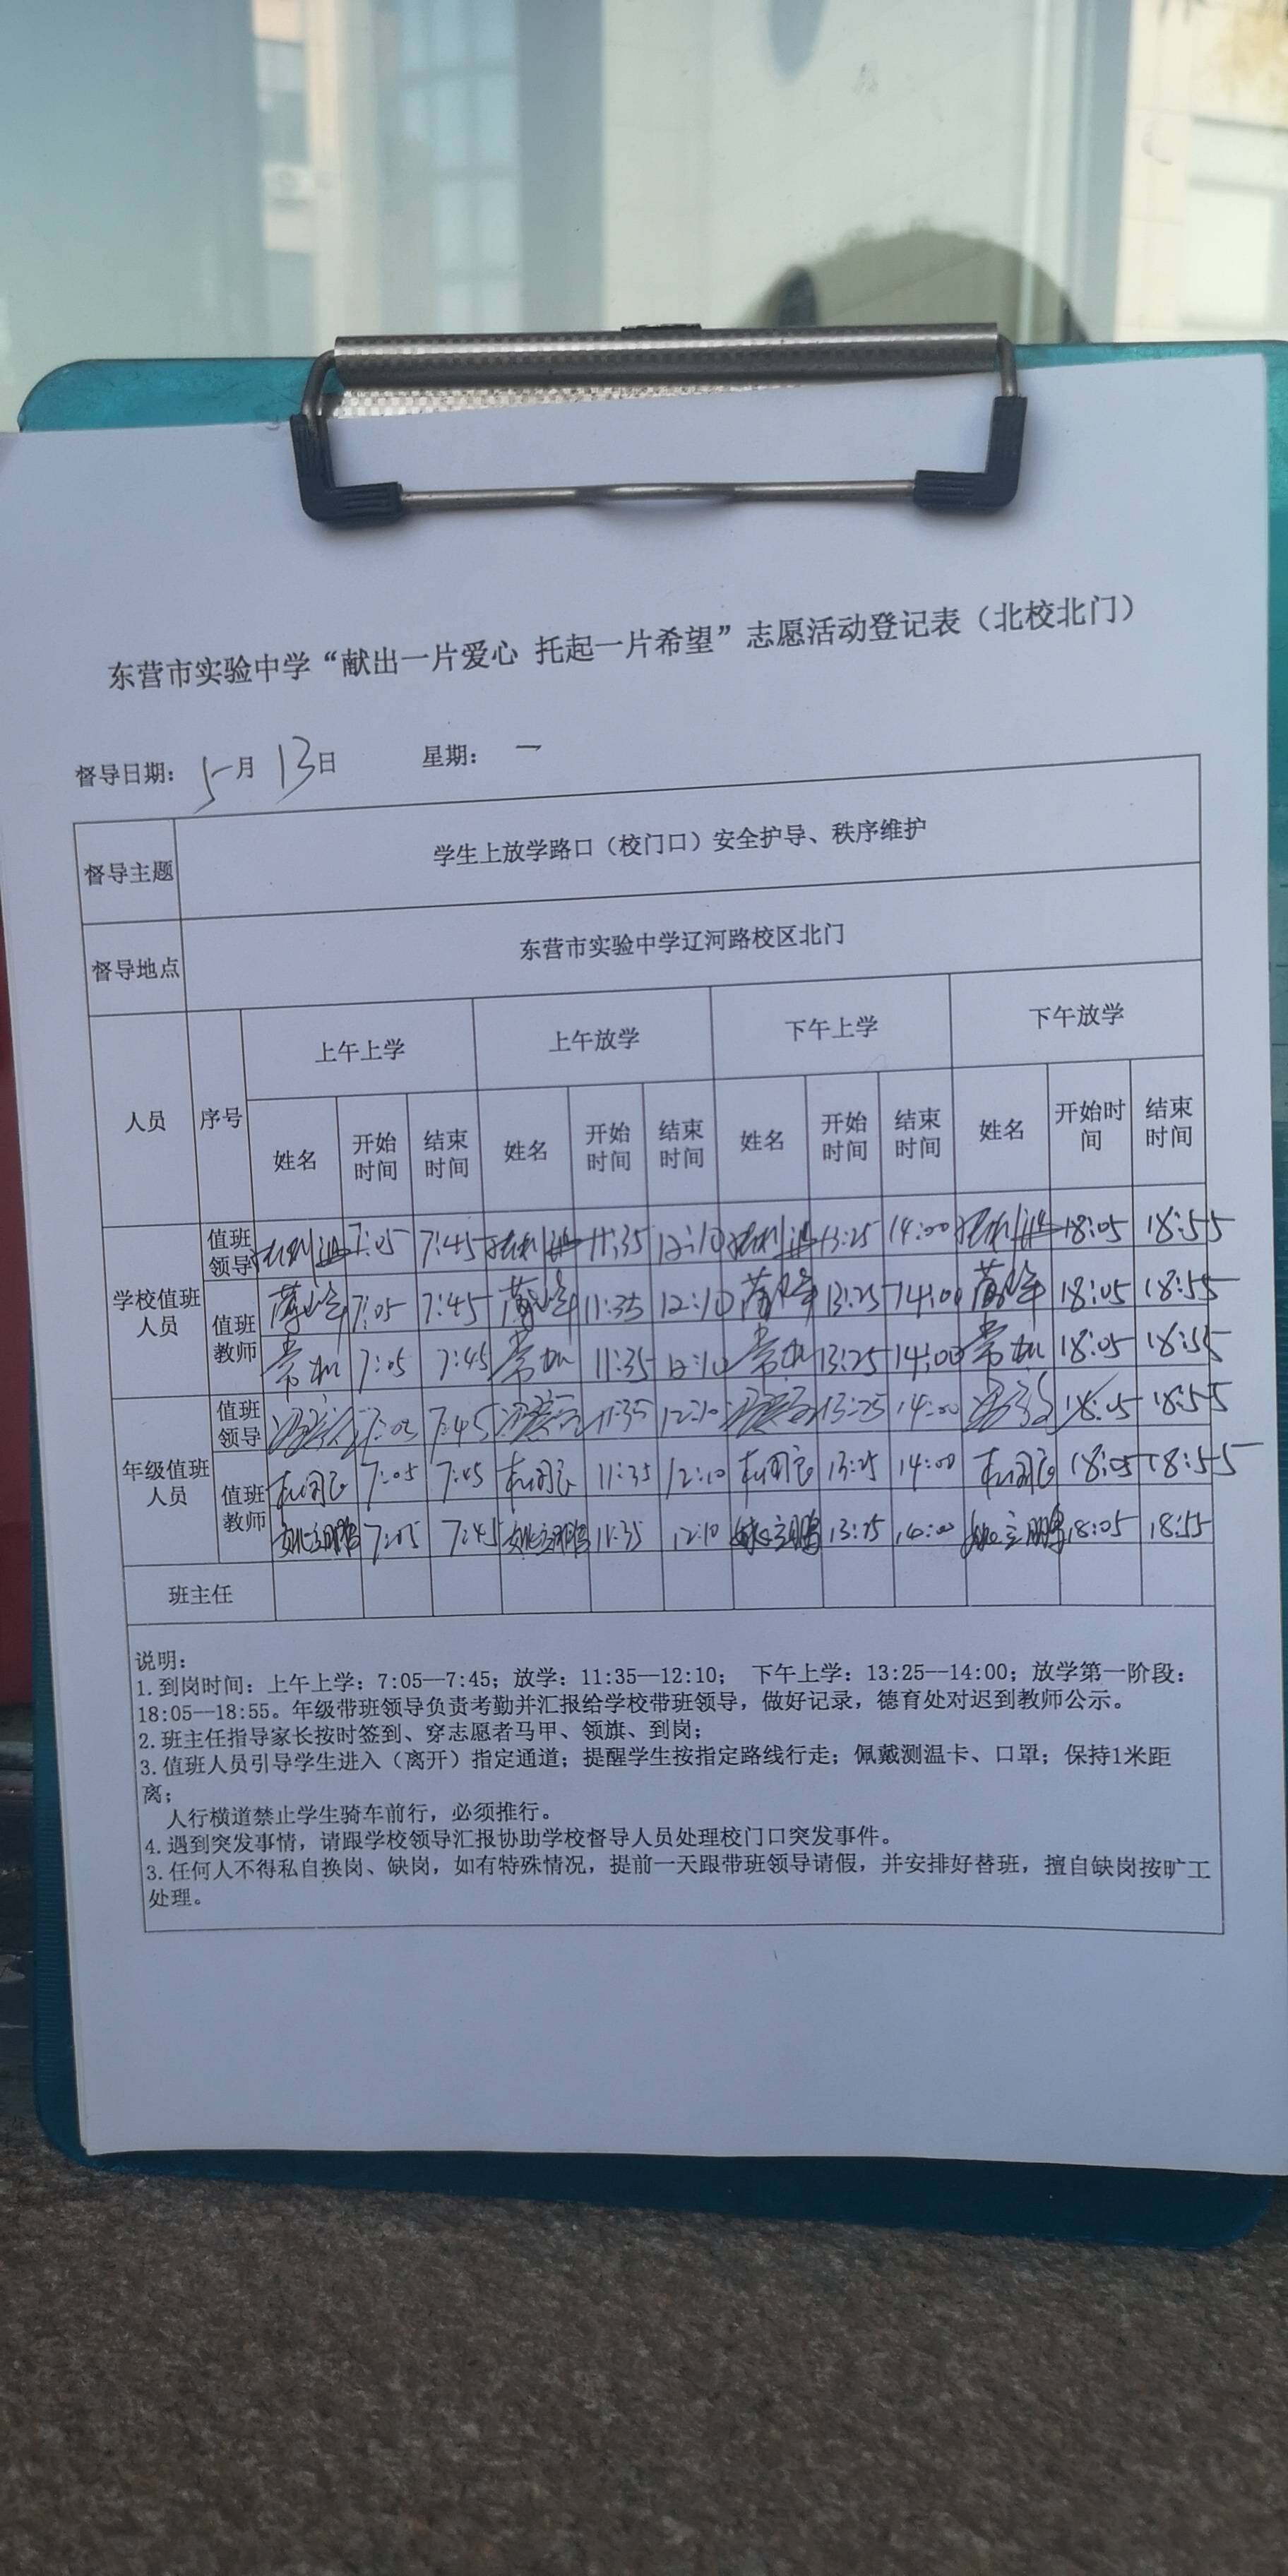 东营市实验中学“献出一片爱心 托起一片希望”志愿活动登记表（北校北门）
督导日期： 5月 13日 星期： 一
督导主题 学生上放学路口（校门口）安全护导、秩序维护
督导地点 东营市实验中学辽河路校区北门
人员 序号 上午上学 上午放学 下午上学 下午放学
姓名 开始时间 结束时间 姓名 开始时间 结束时间 姓名 开始时间 结束时间 姓名 开始时间 结束时间
学校值班人员 值班领导 7:05 7:45 11:35 12:10 13:25 14:00 18:05 18:55
值班教师 7:05 7:45 11:35 12:10 13:25 14:00 18:05 18:55
7:05 7:45 11:35 12:10 13:25 14:00 18:05 18:55
年级值班人员 值班领导 7:05 7:45 11:35 12:10 13:25 14:00 18:05 18:55
值班教师 7:05 7:45 11:35 12:10 13:25 14:00 18:05 18:55
姚立鹏 7:05 7:45 姚立鹏 11:35 12:10 姚立鹏 13:25 14:00 姚立鹏 18:05 18:55
班主任
说明：
1.到岗时间：上午上学：7:05—7:45；放学：11:35—12:10； 下午上学：13:25—14:00；放学第一阶段：
18:05—18:55。年级带班领导负责考勤并汇报给学校带班领导，做好记录，德育处对迟到教师公示。
2.班主任指导家长按时签到、穿志愿者马甲、领旗、到岗；
3.值班人员引导学生进入（离开）指定通道；提醒学生按指定路线行走；佩戴测温卡、口罩；保持1米距
离；
人行横道禁止学生骑车前行，必须推行。
4.遇到突发事情，请跟学校领导汇报协助学校督导人员处理校门口突发事件。
3.任何人不得私自换岗、缺岗，如有特殊情况，提前一天跟带班领导请假，并安排好替班，擅自缺岗按旷工
处理。